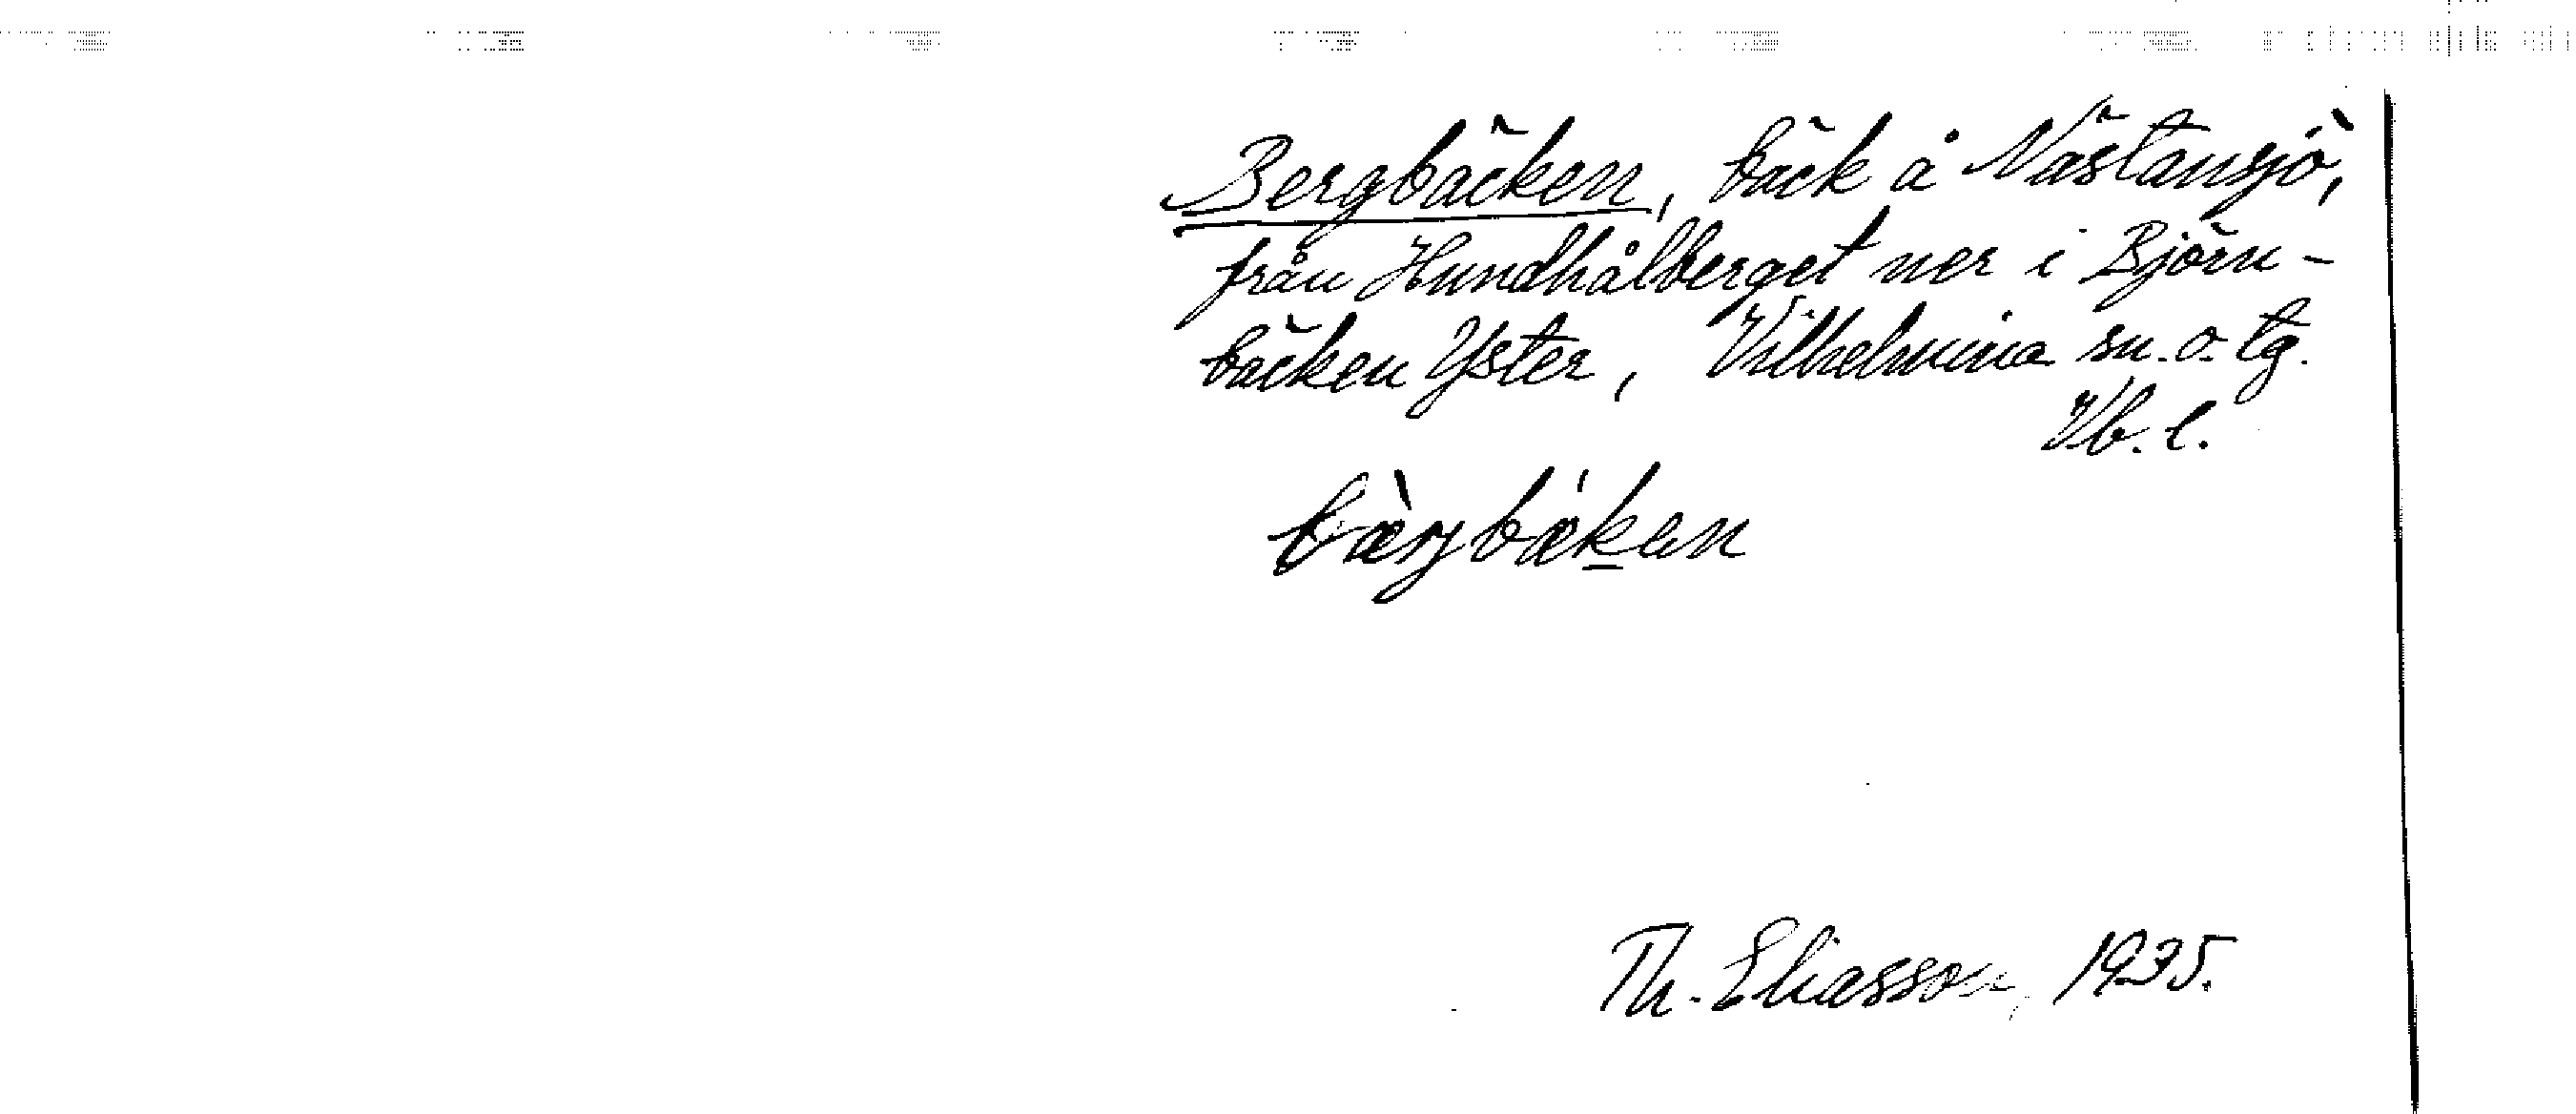 Bergbäcken, bäck å Nästansjö,
från Hundhålberget ner i Björn-
bäcken Yster, Vilhelmina sn. o. tg.
Vb. l.
bæ̀rjbækan
Th. Eliasson, 1935.